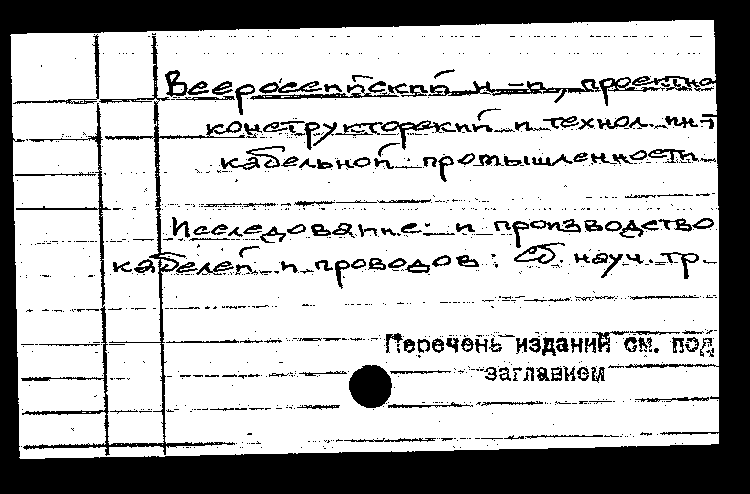 Всероссийский н-и, проектно
конструкторский и технол. ин-т
кабельной промышленности.
Исследование и производство
кабелей и проводов: Сб. науч. тр.
Перечень изданий см. под
заглавием